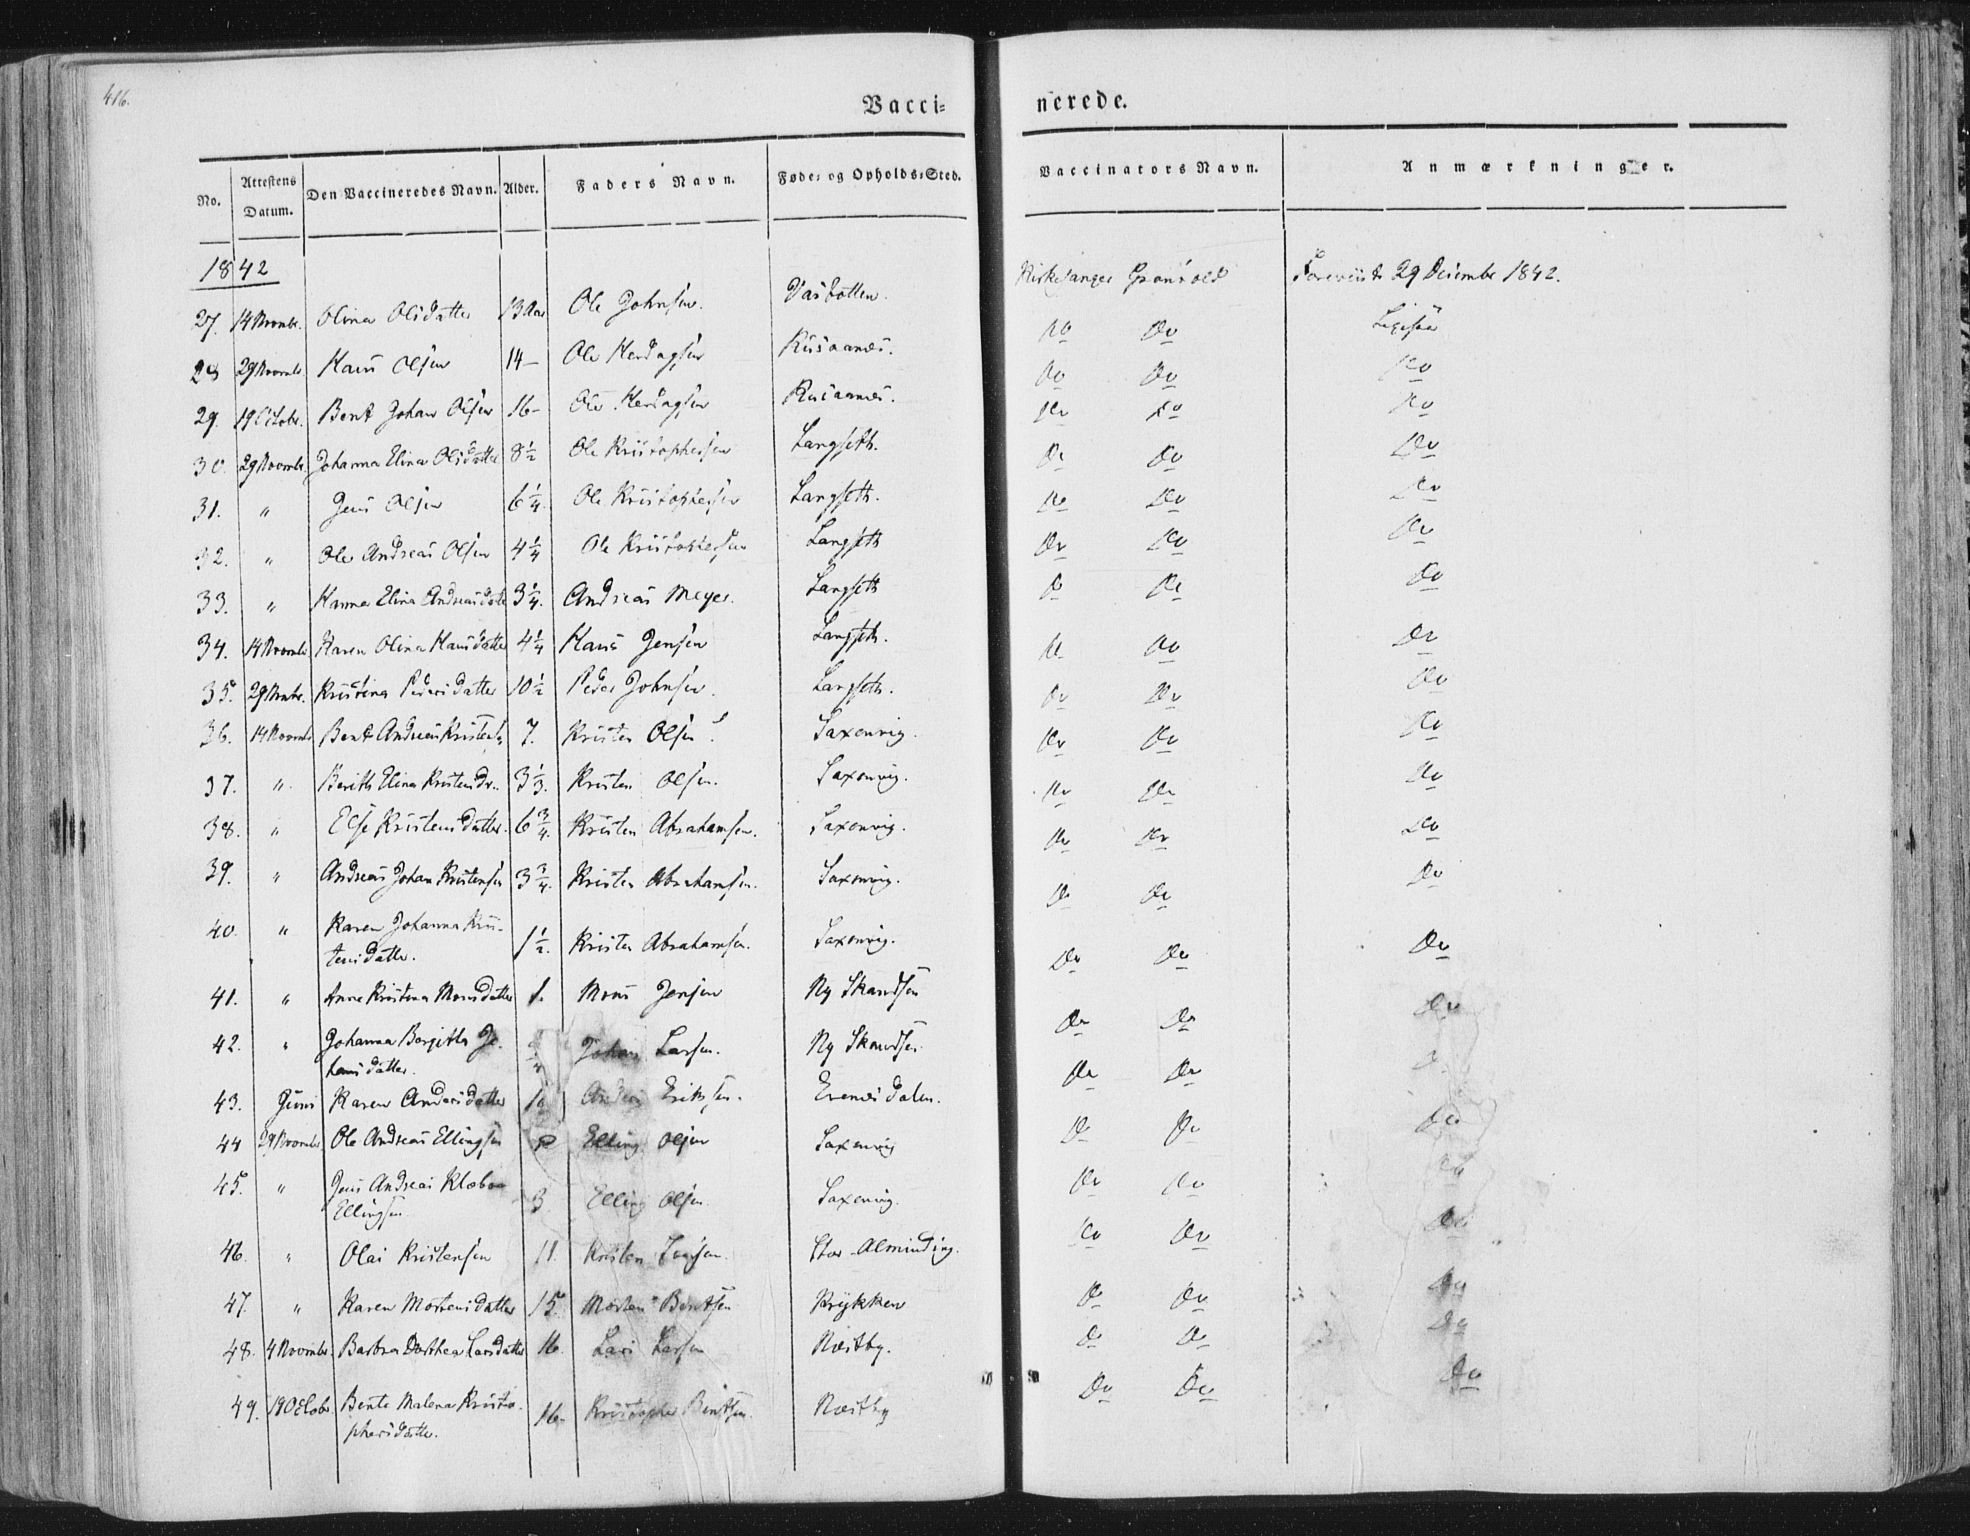 416.
Vacci=
nerede.
No. Attestens Datum. Den Vaccineredes Navn. Alder. Faders Navn. Føde= og Opholds=Sted. Vaccinators Navn. Anmærkninger.
1842
27. 14 Novmbr. Olina Olsdatter 13 Aar Ole Johnsen. Kirkesanger Grønvold Foreviist 29 Decembr 1842.
28 29 Novmbr. Hans Olsen 14 – Ole Herdagsen Rusaanes. Do Do Ligesaa
29. 19 Octobr. Bent Johan Olsen 16 – Ole Herdagsen Rusaanes. Do Do Do
30. 29 Novmbr. Johanna Elina Olsdatter 8½ Ole Kristophersen Langseth. Do Do Do
31. " Jens Olsen 6¼. Ole Kristophersen Langseth. Do Do Do
32. " Ole Andreas Olsen 4¼ Ole Kristophersen Langseth Do Do Do
33. " Hanna Elina Andreasdatt 3¼. Andreas Meyer. Langseth Do Do Do
34. 14 Novmbr Karen Olina Hansdatter 4¼ Hans Jensen Langseth. Do Do Do
35. 29 Nvbr. Kristina Pedersdatter 10½ Peder Johnsen. Langseth. Do Do Do
36. 14 Novmbr Bent Andreas Kristens. 7. Kristen Olsen. Saxenvig. Do Do Do
37. " Berith Elina Kristensdr. 3⅓. Kristen Olsen. Saxenvig. Do Do Do
38. " Else Kristensdatter. 6¾. Kristen Abrahamsen. Saxenvig. Do Do Do
39. " Andreas Johan Kristensen 3¾. Kristen Abrahamsen. Saxenvig. Do Do Do
40. " Karen Johanna Kris-
tensdatter. 1½. Kristen Abrahamsen. Saxenvig. Do Do Do
41. " Anne Kristina Monsdatter 1. Mons Jensen Ny Skandsen Do Do Do
42. " Johanna Bergitha Jo-
hansdatter. Johan Larsen. Ny Skandsen Do Do
43. Juni Karen Andersdatter Anders Eriksen. Evenesdalen. Do Do Do
44 29 Novmbr Ole Andreas Ellingsen Elling Olsen Saxenvig Do Do Do
45. " Jens Andreas Klæboe
Ellingsen 3 Elling Olsen. Saxenvig. Do Do Do
46. " Olai Kristensen 11. Kristen Stor-Alminding. Do Do Do
47. " Karen Mortensdatter 15. Morten Bentsen Krykken Do Do Do
48. 4 Novmbr. Barbra Dorthea Larsdatter 16. Lars Larsen Næstby. Do Do Do
49. 19 Octobr. Bente Malena Kristo-
phersdatter. 16– Kristopher Bentsen. Næstby